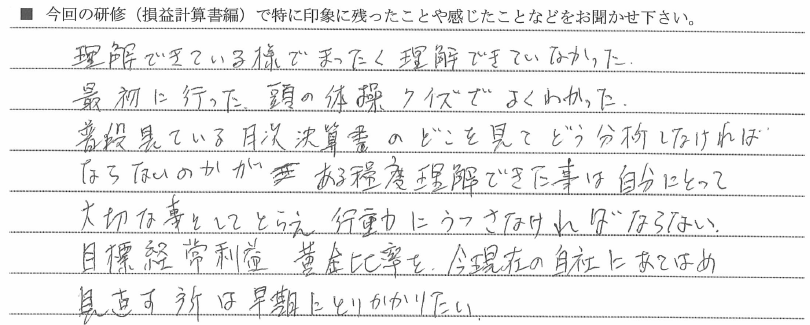 ■ 今回の研修（損益計算書編）で特に印象に残ったことや感じたことなどをお聞かせ下さい。
理解できている様でまったく理解できていなかった.
最初に行った、頭の体操クイズでよくわかった.
普段見ている月次決算書のどこを見てどう分析しなければ
ならないのかが ある程度理解できた事は自分にとって
大切な事としてとらえ 行動にうつさなければならない.
目標経常利益 黄金比率を、今現在の自社にあてはめ
見直す所は早期にとりかかりたい.